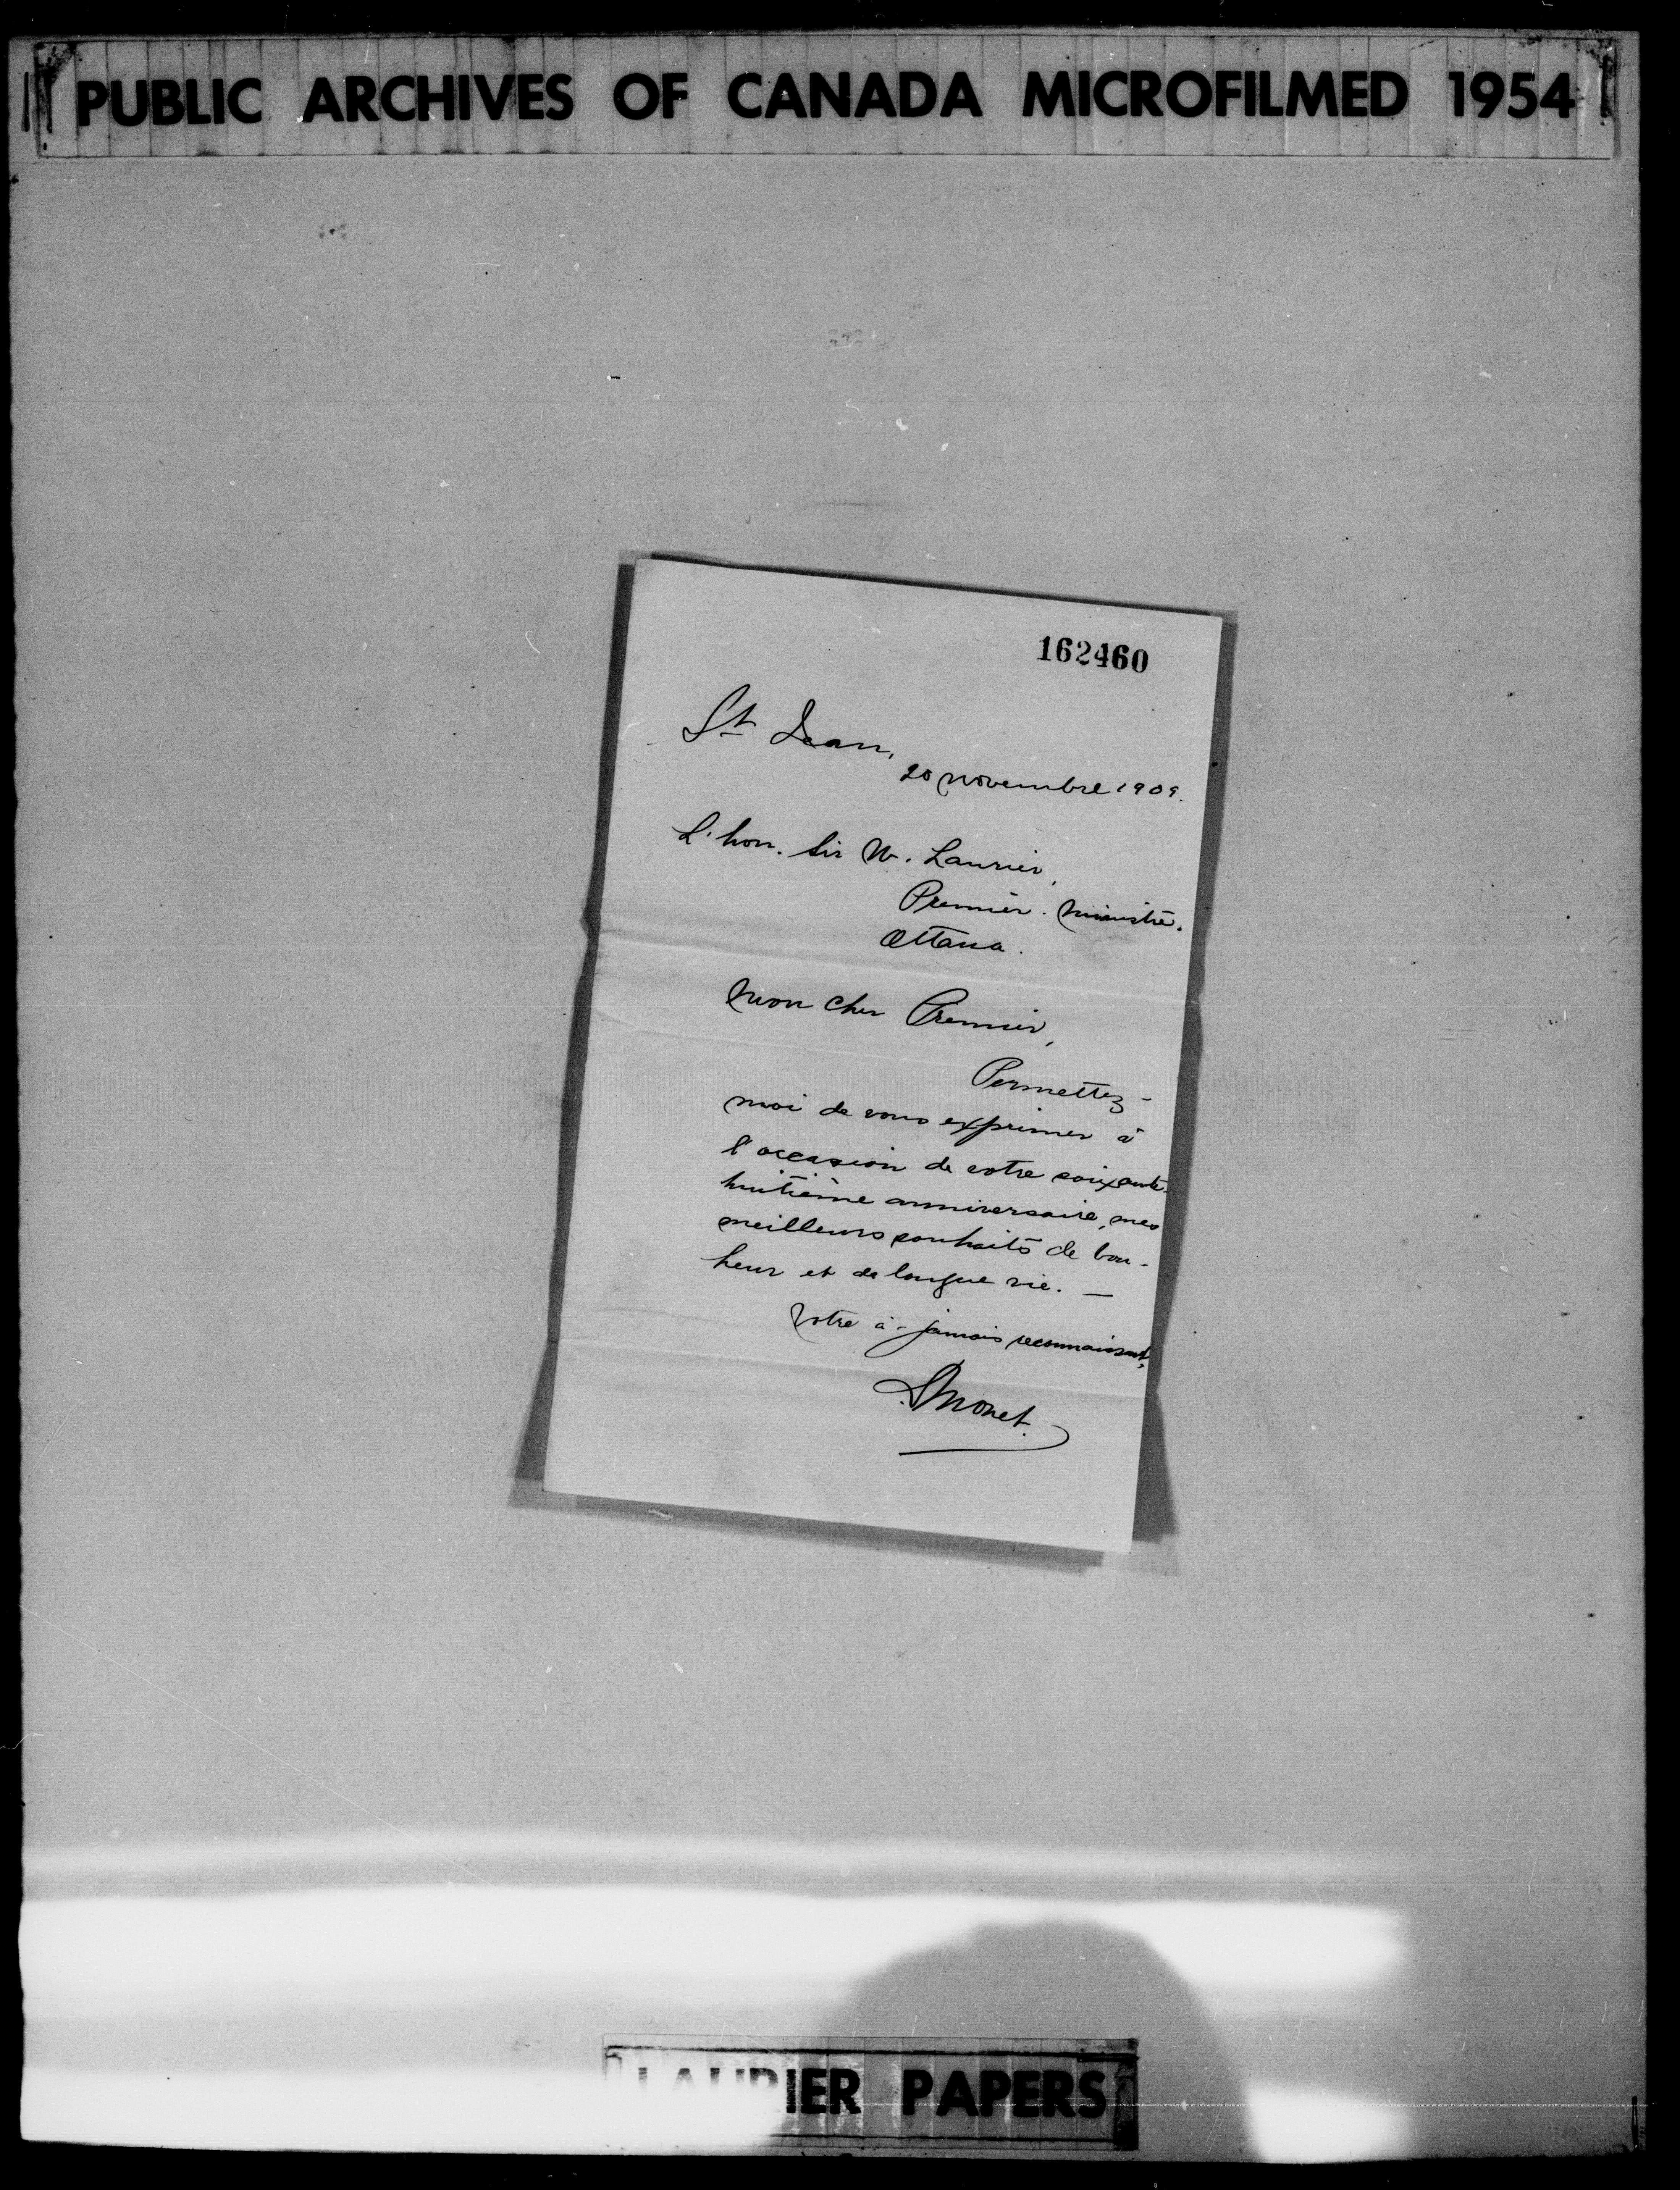 PUBLIC ARCHIVES OF CANADA MICROFILMED 1954
162460
St Jean,
20 novembre 1909.
L'hon. Sir W. Laurier,
Premier. ministre.
Ottawa.
Mon cher Premier,
Permettez-
moi de vous exprimer à
l'occasion de votre soixante-
huitième anniversaire, mes
meilleurs souhaits de bon-
heur et de longue vie. —
Votre à-jamais reconnaissant,
D. Monet.
LAURIER PAPERS